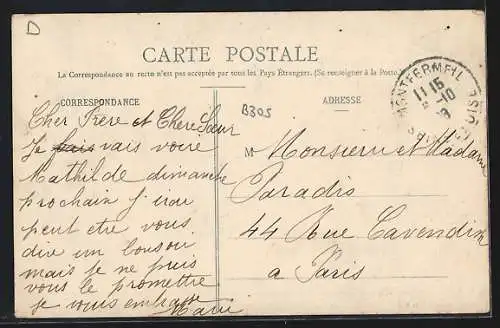 D
CARTE POSTALE
La Correspondance au recto n'est pas acceptée par tous les Pays Étrangers. (Se renseigner à la Poste)
CORRESPONDANCE
B305
ADRESSE
MONTFERMEIL
11 15
-10
Cher Frere et Chere Sœur
Je fais vais voire
Mathilde dimanche
prochain J irai
peut etre vous
dire un bonsoir
mais je ne puis
vous le promettre
je vous embrasse
Marie
M Monsieur et Madame
Paradis
44 Rue Cavendish
a Paris